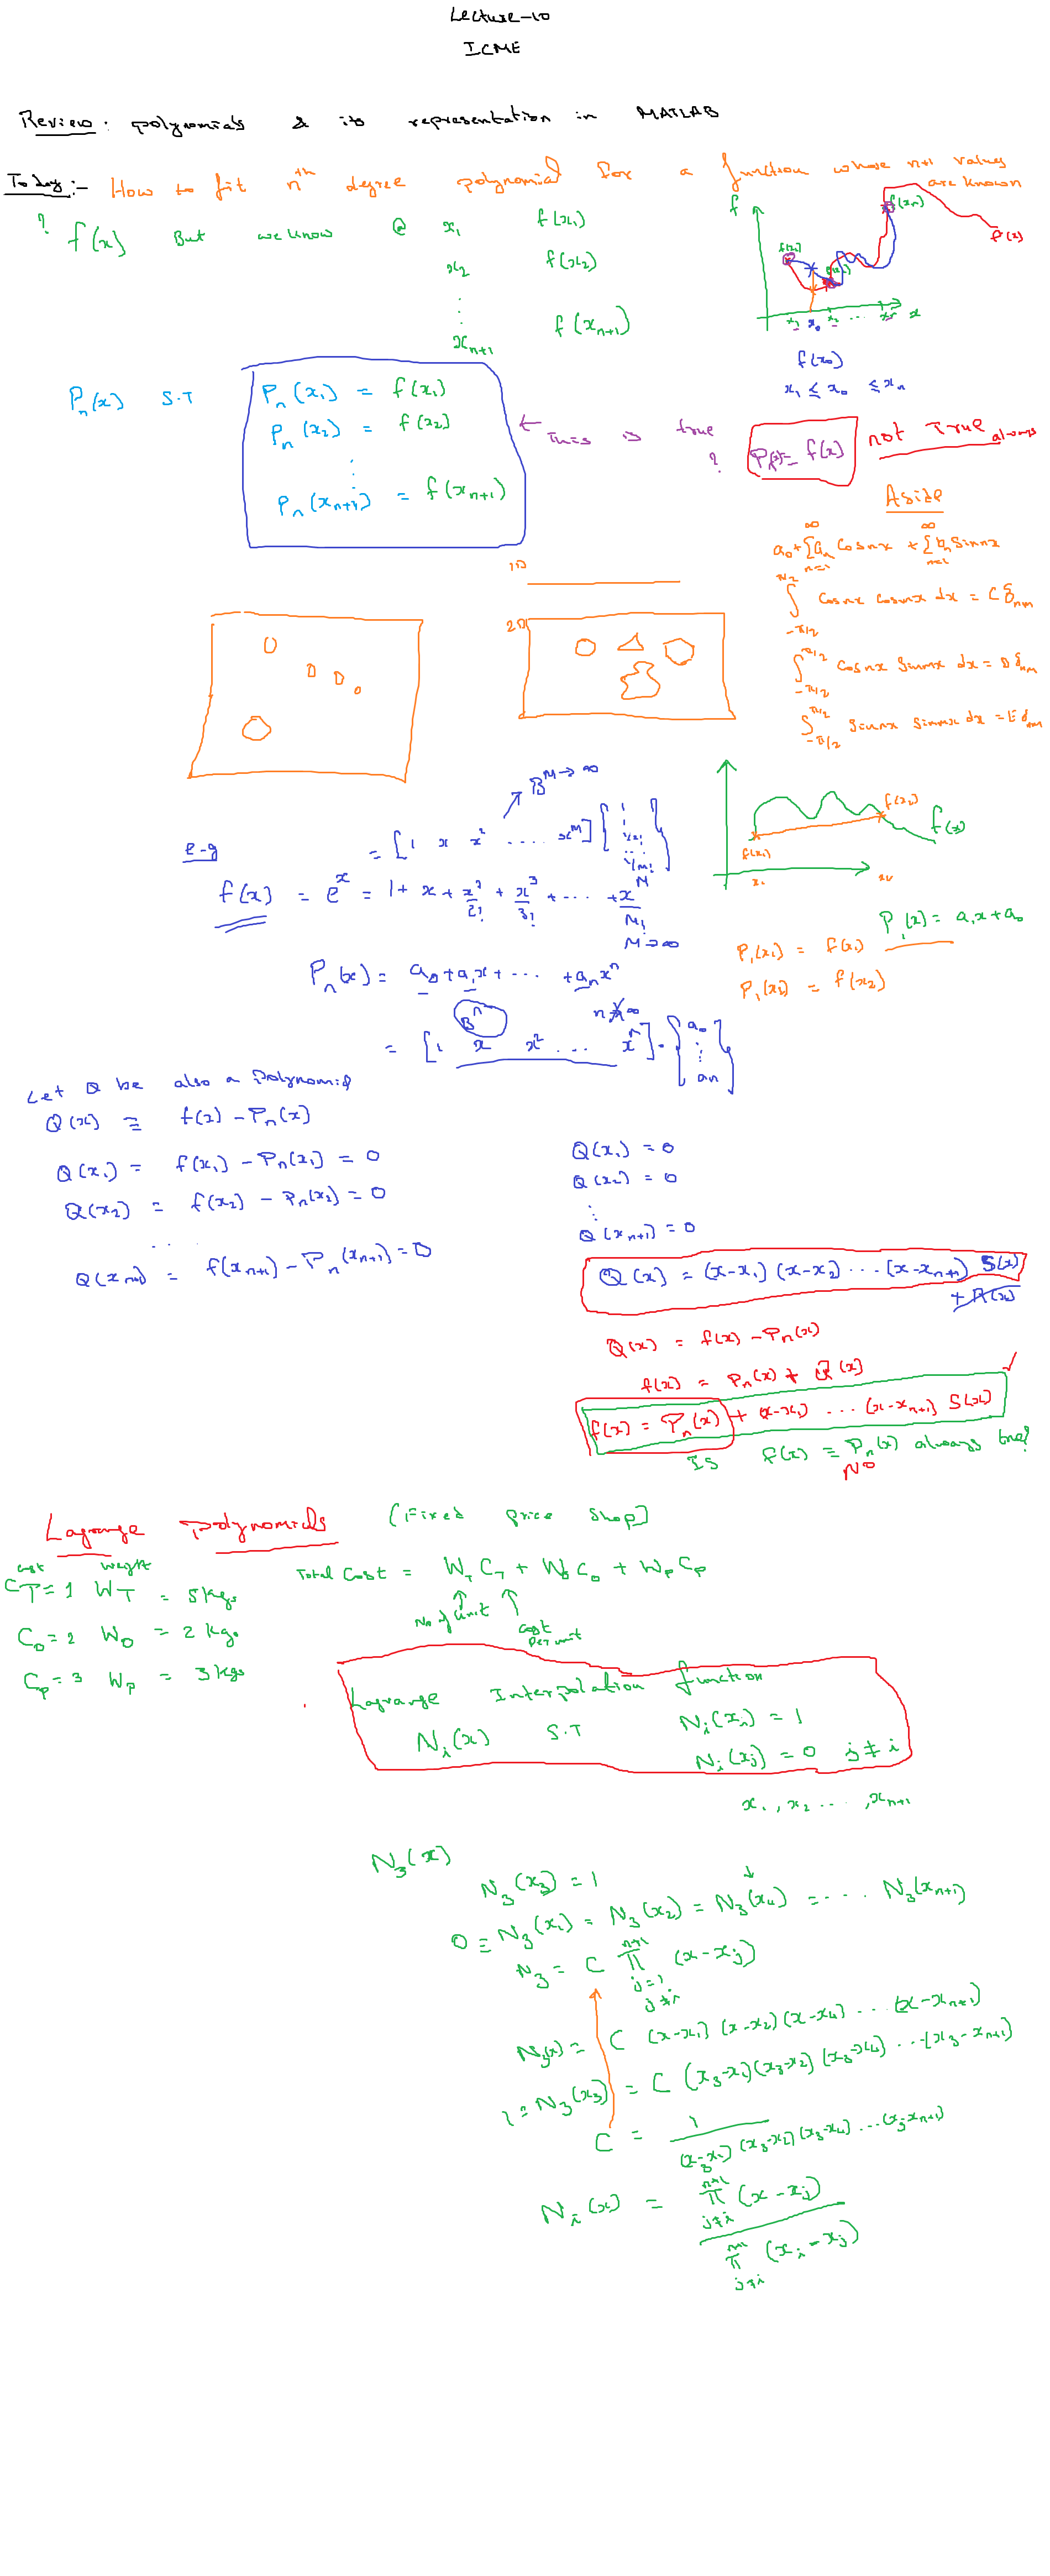 Lecture-10
ICME
Review: polynomials & its representation in MATLAB
Today:- How to fit nth degree polynomial for a function whose n+1 values are known
? f(x) But we know @ x₁ f(x₁)
x₂ f(x₂)
⋮
xₙ₊₁ f(xₙ₊₁)
f
f(x₁)
f(xₙ)
f(x)
x₁ x₀ x₂ ... x
f(x₀)
x₁ ≤ x₀ ≤ xₙ
Pₙ(x) S.T Pₙ(x₁) = f(x₁)
Pₙ(x₂) = f(x₂)
⋮
Pₙ(xₙ₊₁) = f(xₙ₊₁)
← This is true
? Pₙ(x) = f(x) not True always
Aside
a₀ + Σ aₙ cosnx + Σ bₙ sinnx
∫ cosnx cosmx dx = C δₙₘ
-π/2
∫ cosnx sinmx dx = D δₙₘ
-π/2
∫ sinnx sinmx dx = E δₙₘ
-π/2
1D
2D
B^M→∞
e-g = [1 x x² .... x^M]
f(x) = eˣ = 1 + x + x²/2! + x³/3! + ... + x^M/M!
M→∞
f(x₁) f(x₂) f(x)
P₁(x) = a₁x + a₀
P₁(x₁) = f(x₁)
P₁(x₂) = f(x₂)
Pₙ(x) = a₀ + a₁x + ... + aₙxⁿ
Bⁿ
= [1 x x² ... xⁿ] · {a₀ ⋮ aₙ}
Let Q be also a Polynomial
Q(x) = f(x) - Pₙ(x)
Q(x₁) = f(x₁) - Pₙ(x₁) = 0
Q(x₂) = f(x₂) - Pₙ(x₂) = 0
...
Q(xₙ₊₁) = f(xₙ₊₁) - Pₙ(xₙ₊₁) = 0
Q(x₁) = 0
Q(x₂) = 0
⋮
Q(xₙ₊₁) = 0
Q(x) = (x-x₁)(x-x₂)...(x-xₙ₊₁) S(x)
+ R(x)
Q(x) = f(x) - Pₙ(x)
f(x) = Pₙ(x) + Q(x)
f(x) = Pₙ(x) + (x-x₁) ... (x-xₙ₊₁) S(x)
Is f(x) = Pₙ(x) always true?
NO
Lagrange Polynomials (Fixed price shop)
cost weight
C_T=1 W_T = 5kgs
C_O=2 W_O = 2kgs
C_P=3 W_P = 3kgs
Total Cost = W_T C_T + W_O C_O + W_P C_P
No of unit
cost per unit
Lagrange Interpolation function
Nᵢ(x) S.T Nᵢ(xᵢ) = 1
Nᵢ(xⱼ) = 0 j≠i
x₁, x₂ ..., xₙ₊₁
N₃(x)
N₃(x₃) = 1
0 = N₃(x₁) = N₃(x₂) = N₃(x₄) = ... N₃(xₙ₊₁)
N₃ = C π (x-xⱼ)
j=1
j≠i
N₃(x) = C (x-x₁)(x-x₂)(x-x₄) ... (x-xₙ₊₁)
1 = N₃(x₃) = C (x₃-x₁)(x₃-x₂)(x₃-x₄) ... (x₃-xₙ₊₁)
C = 1 / (x₃-x₁)(x₃-x₂)(x₃-x₄)...(x₃-xₙ₊₁)
Nᵢ(x) = π (x-xⱼ)
j≠i
π (xᵢ-xⱼ)
j≠i